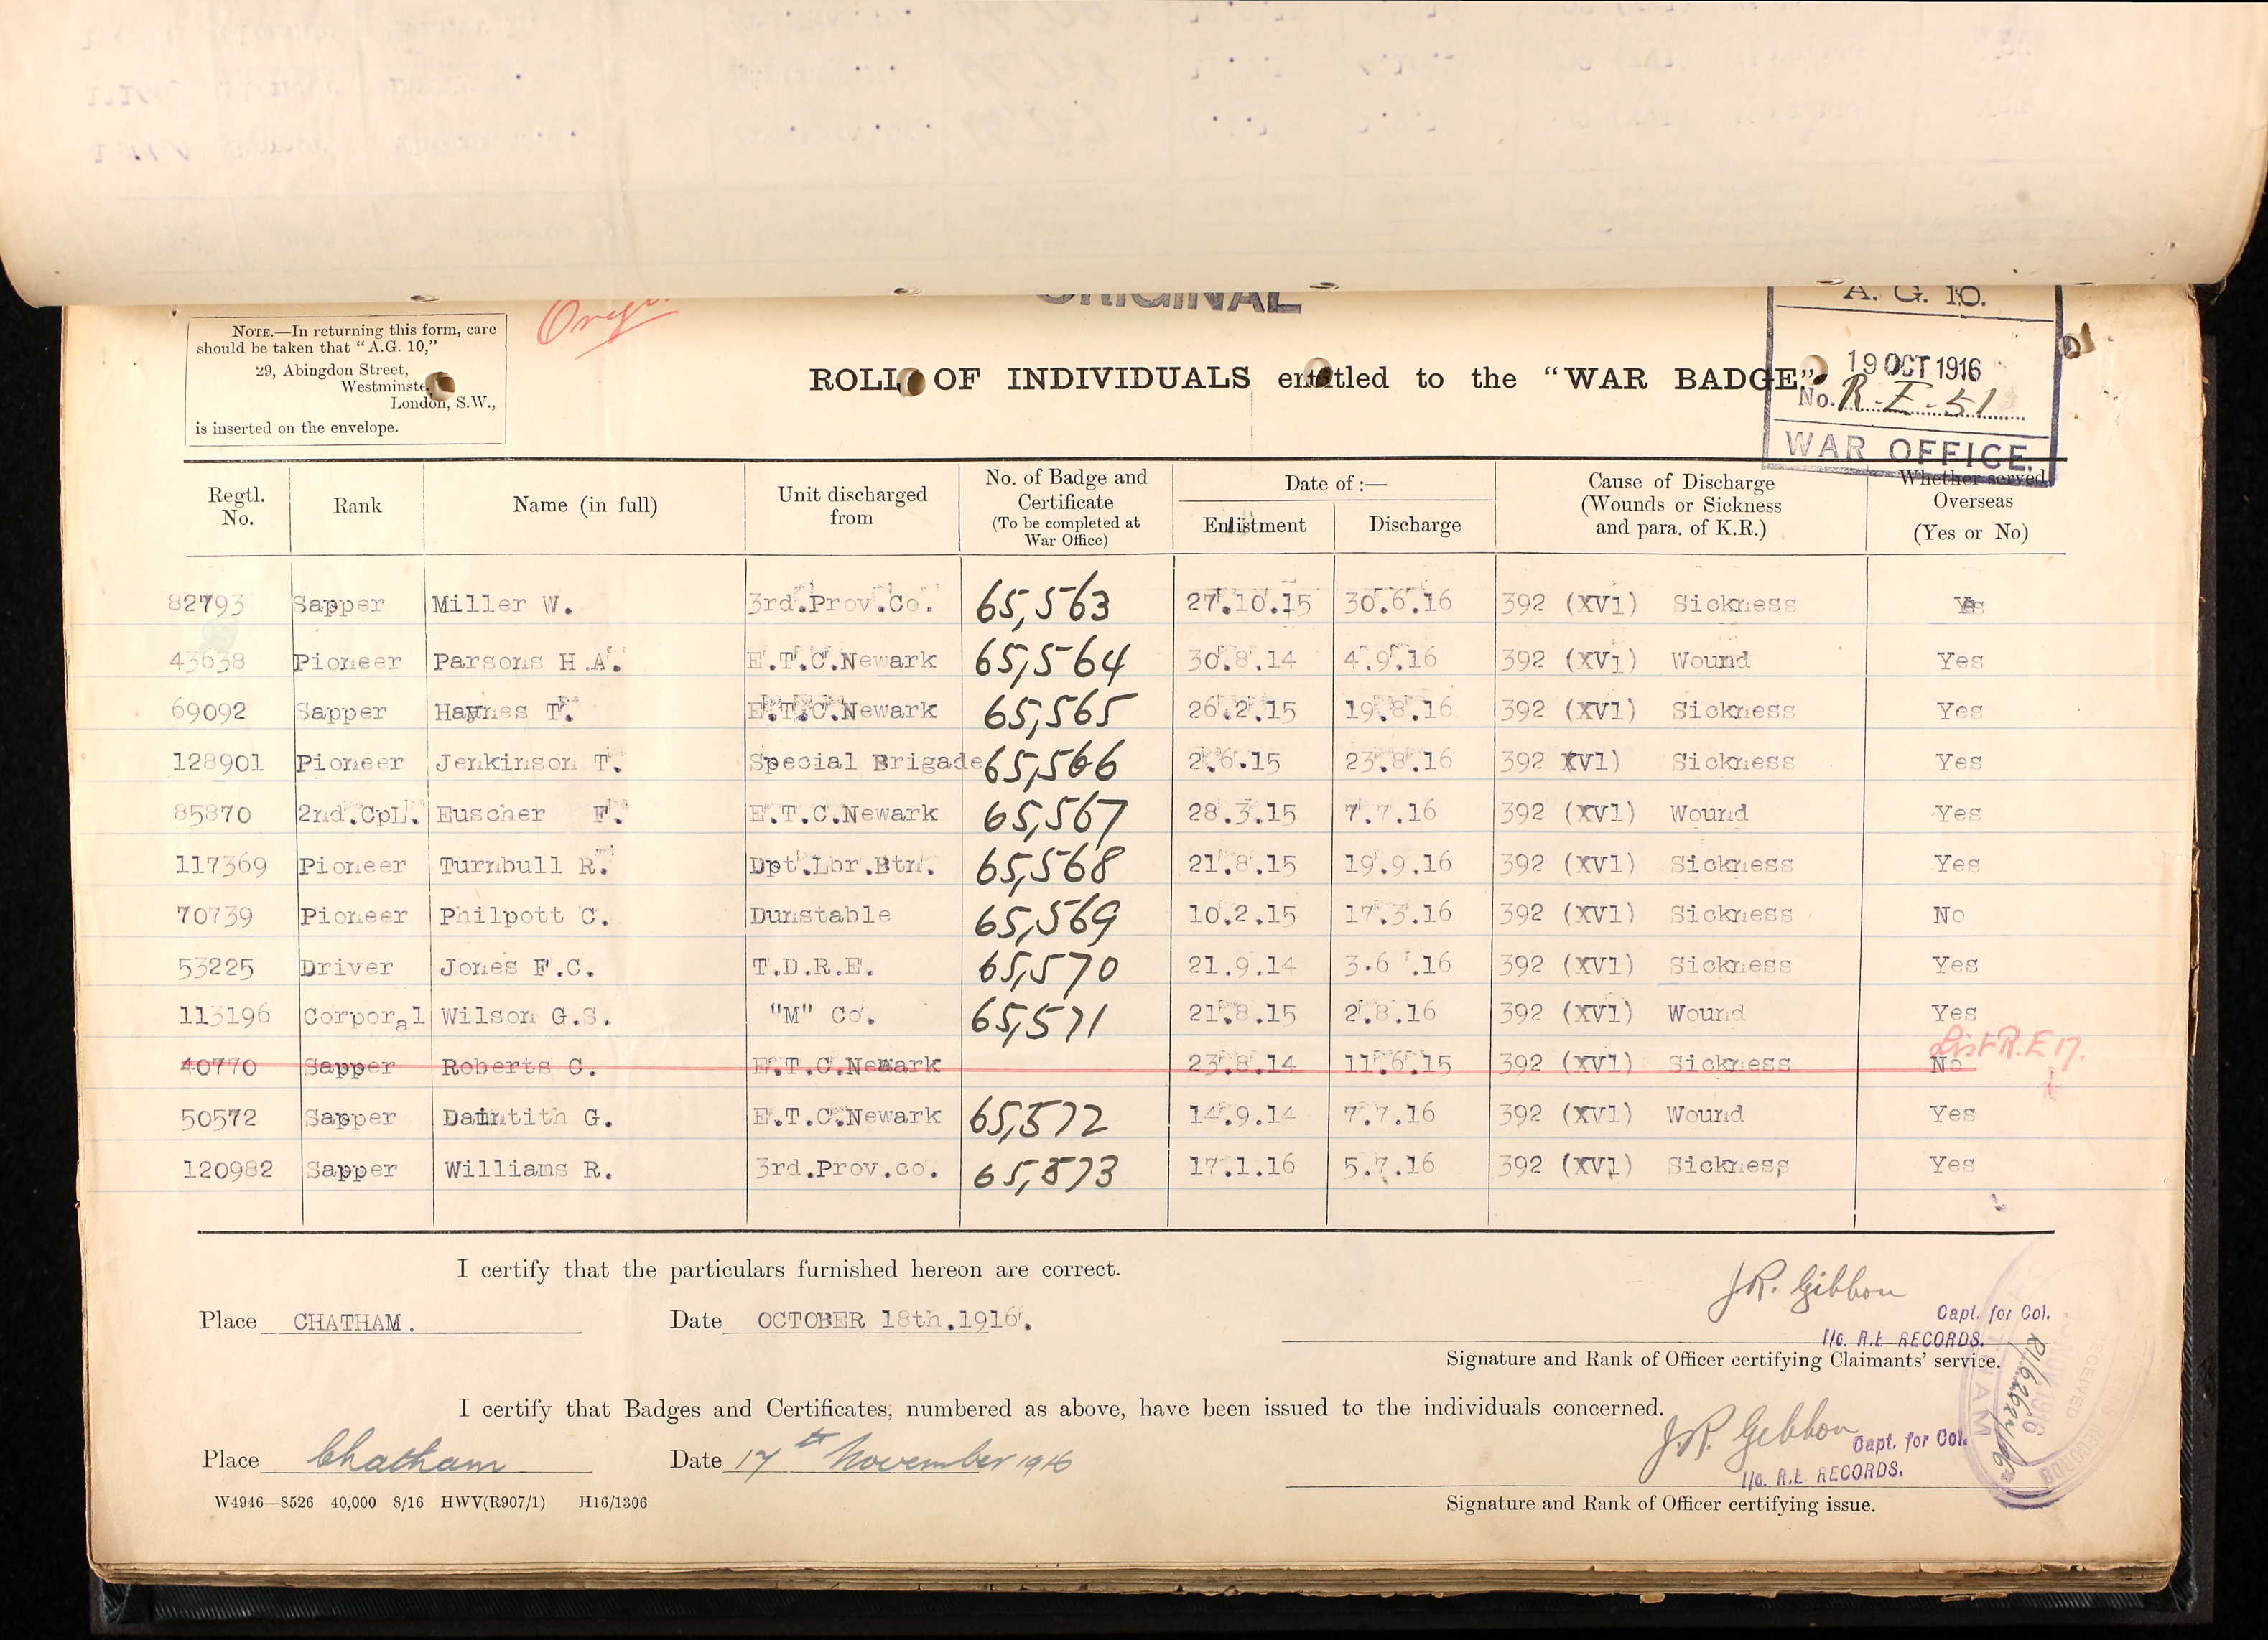 ORIGINAL
A. G. 10.
19 OCT 1916
No. R.E. 51
WAR OFFICE.
NOTE.—In returning this form, care
should be taken that "A.G. 10,"
29, Abingdon Street,
Westminster
London, S.W.,
is inserted on the envelope.
ROLL OF INDIVIDUALS entitled to the "WAR BADGE."
Regtl. No. Rank Name (in full) Unit discharged from No. of Badge and Certificate (To be completed at War Office) Date of :— Enlistment Discharge Cause of Discharge (Wounds or Sickness and para. of K.R.) Whether served Overseas (Yes or No)
82793 Sapper Miller W. 3rd.Prov.Co. 65,563 27.10.15 30.6.16 392 (XV1) Sickness Yes
43638 Pioneer Parsons H.A. E.T.C.Newark 65,564 30.8.14 4.9.16 392 (XV1) Wound Yes
69092 Sapper Haynes T. E.T.C.Newark 65,565 26.2.15 19.8.16 392 (XV1) Sickness Yes
128901 Pioneer Jenkinson T. Special Brigade 65,566 2.6.15 23.8.16 392 XV1) Sickness Yes
85870 2nd.CpL. Euscher F. E.T.C.Newark 65,567 28.3.15 7.7.16 392 (XV1) Wound Yes
117369 Pioneer Turnbull R. Dpt.Lbr.Btn. 65,568 21.8.15 19.9.16 392 (XV1) Sickness Yes
70739 Pioneer Philpott C. Dunstable 65,569 10.2.15 17.3.16 392 (XV1) Sickness No
53225 Driver Jones F.C. T.D.R.E. 65,570 21.9.14 3.6.16 392 (XV1) Sickness Yes
113196 Corporal Wilson G.S. "M" Co. 65,571 21.8.15 2.8.16 392 (XV1) Wound Yes
List R.E 17.
40770 Sapper Roberts C. E.T.C.Newark 23.8.14 11.6.15 392 (XV1) Sickness No
50572 Sapper Daintith G. E.T.C.Newark 65,572 14.9.14 7.7.16 392 (XV1) Wound Yes
120982 Sapper Williams R. 3rd.Prov.co. 65,573 17.1.16 5.7.16 392 (XV1) Sickness Yes
I certify that the particulars furnished hereon are correct.
J.R. Gibbon
Capt. for Col.
I/c. R.E RECORDS.
Place CHATHAM. Date OCTOBER 18th.1916.
Signature and Rank of Officer certifying Claimants' service.
I certify that Badges and Certificates, numbered as above, have been issued to the individuals concerned.
J.R. Gibbon
Capt. for Col.
I/c. R.E RECORDS.
Place Chatham Date 17th November 1916
Signature and Rank of Officer certifying issue.
W4946—8526 40,000 8/16 HWV(R907/1) H16/1306